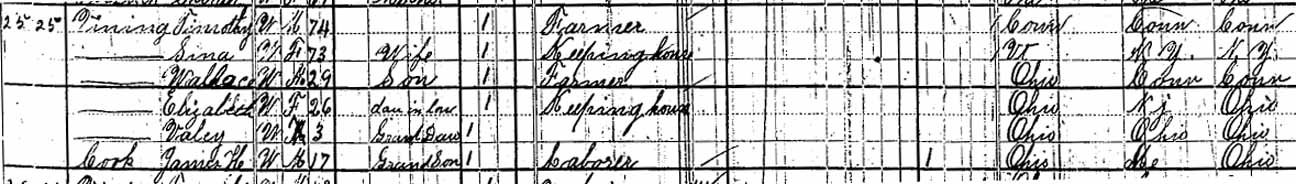 25 25 Vining Timothy W M 74 1 Farmer Conn Conn Conn
Sina W F 73 Wife 1 Keeping house Vt N.Y. N.Y.
Wallace W M 29 Son 1 Farmer Ohio Conn Conn
Elizabeth W F 26 dau in law 1 Keeping house Ohio N.J. Ohio
Valey W 3 Grand Dau 1 Ohio Ohio Ohio
Cook James H W M 17 Grand Son 1 Laborer 1 Ohio Me Ohio